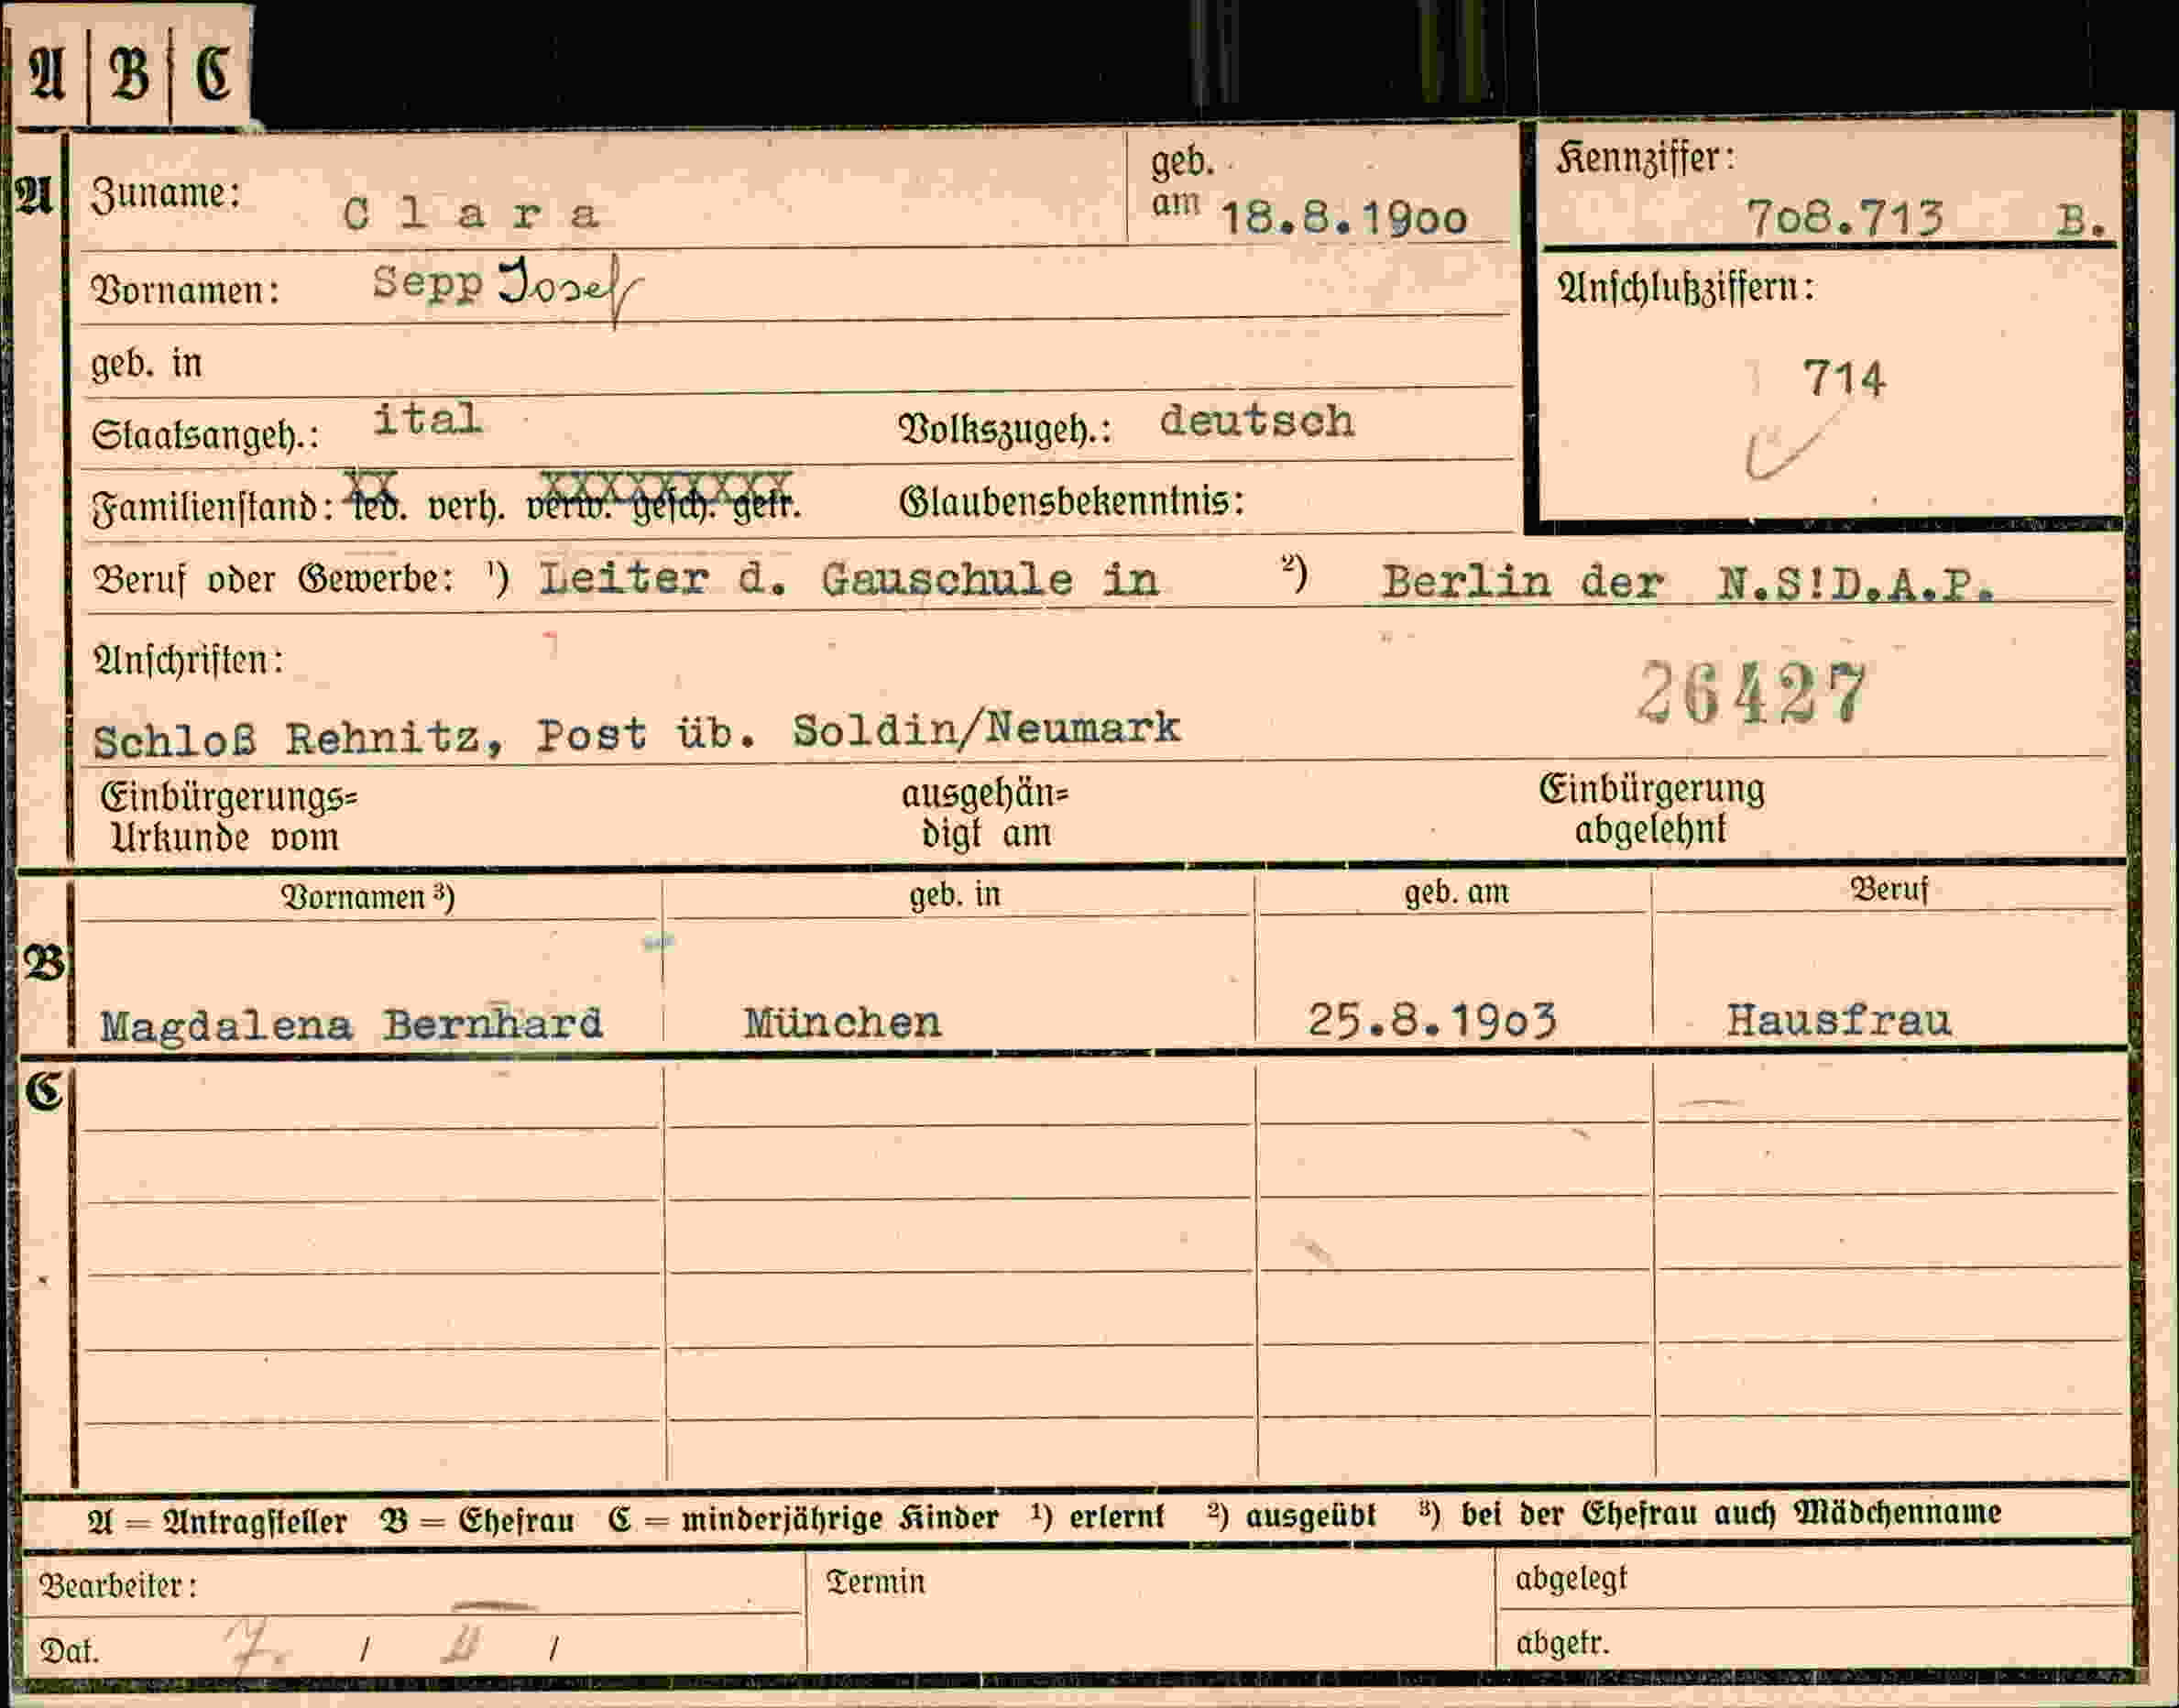 A | B | C
A Zuname: Clara geb. am 18.8.19oo Kennziffer: 7o8.713 B.
Vornamen: Sepp Josef Anschlußziffern:
geb. in 714
Staatsangeh.: ital Volkszugeh.: deutsch
Familienstand: led. verh. verw. gesch. getr. Glaubensbekenntnis:
Beruf oder Gewerbe: ¹) Leiter d. Gauschule in ²) Berlin der N.S!D.A.P.
Anschriften: 26427
Schloß Rehnitz, Post üb. Soldin/Neumark
Einbürgerungs= ausgehän= Einbürgerung
Urkunde vom digt am abgelehnt
Vornamen ³) geb. in geb. am Beruf
B
Magdalena Bernhard München 25.8.19o3 Hausfrau
C
A = Antragsteller B = Ehefrau C = minderjährige Kinder ¹) erlernt ²) ausgeübt ³) bei der Ehefrau auch Mädchenname
Bearbeiter: Termin abgelegt
Dat. 7. / / abgetr.